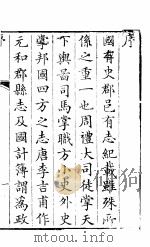 序
國有史郡邑有志紀載雖殊所
係之重一也周禮大司徒掌天
下輿啚司馬掌職方小史外史
掌邦國四方之志唐李吉甫作
元和郡縣志及國計簿謂為政
序